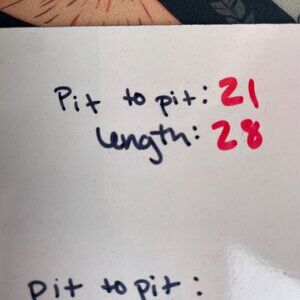 Pit to pit: 21
length: 28
pit to pit: